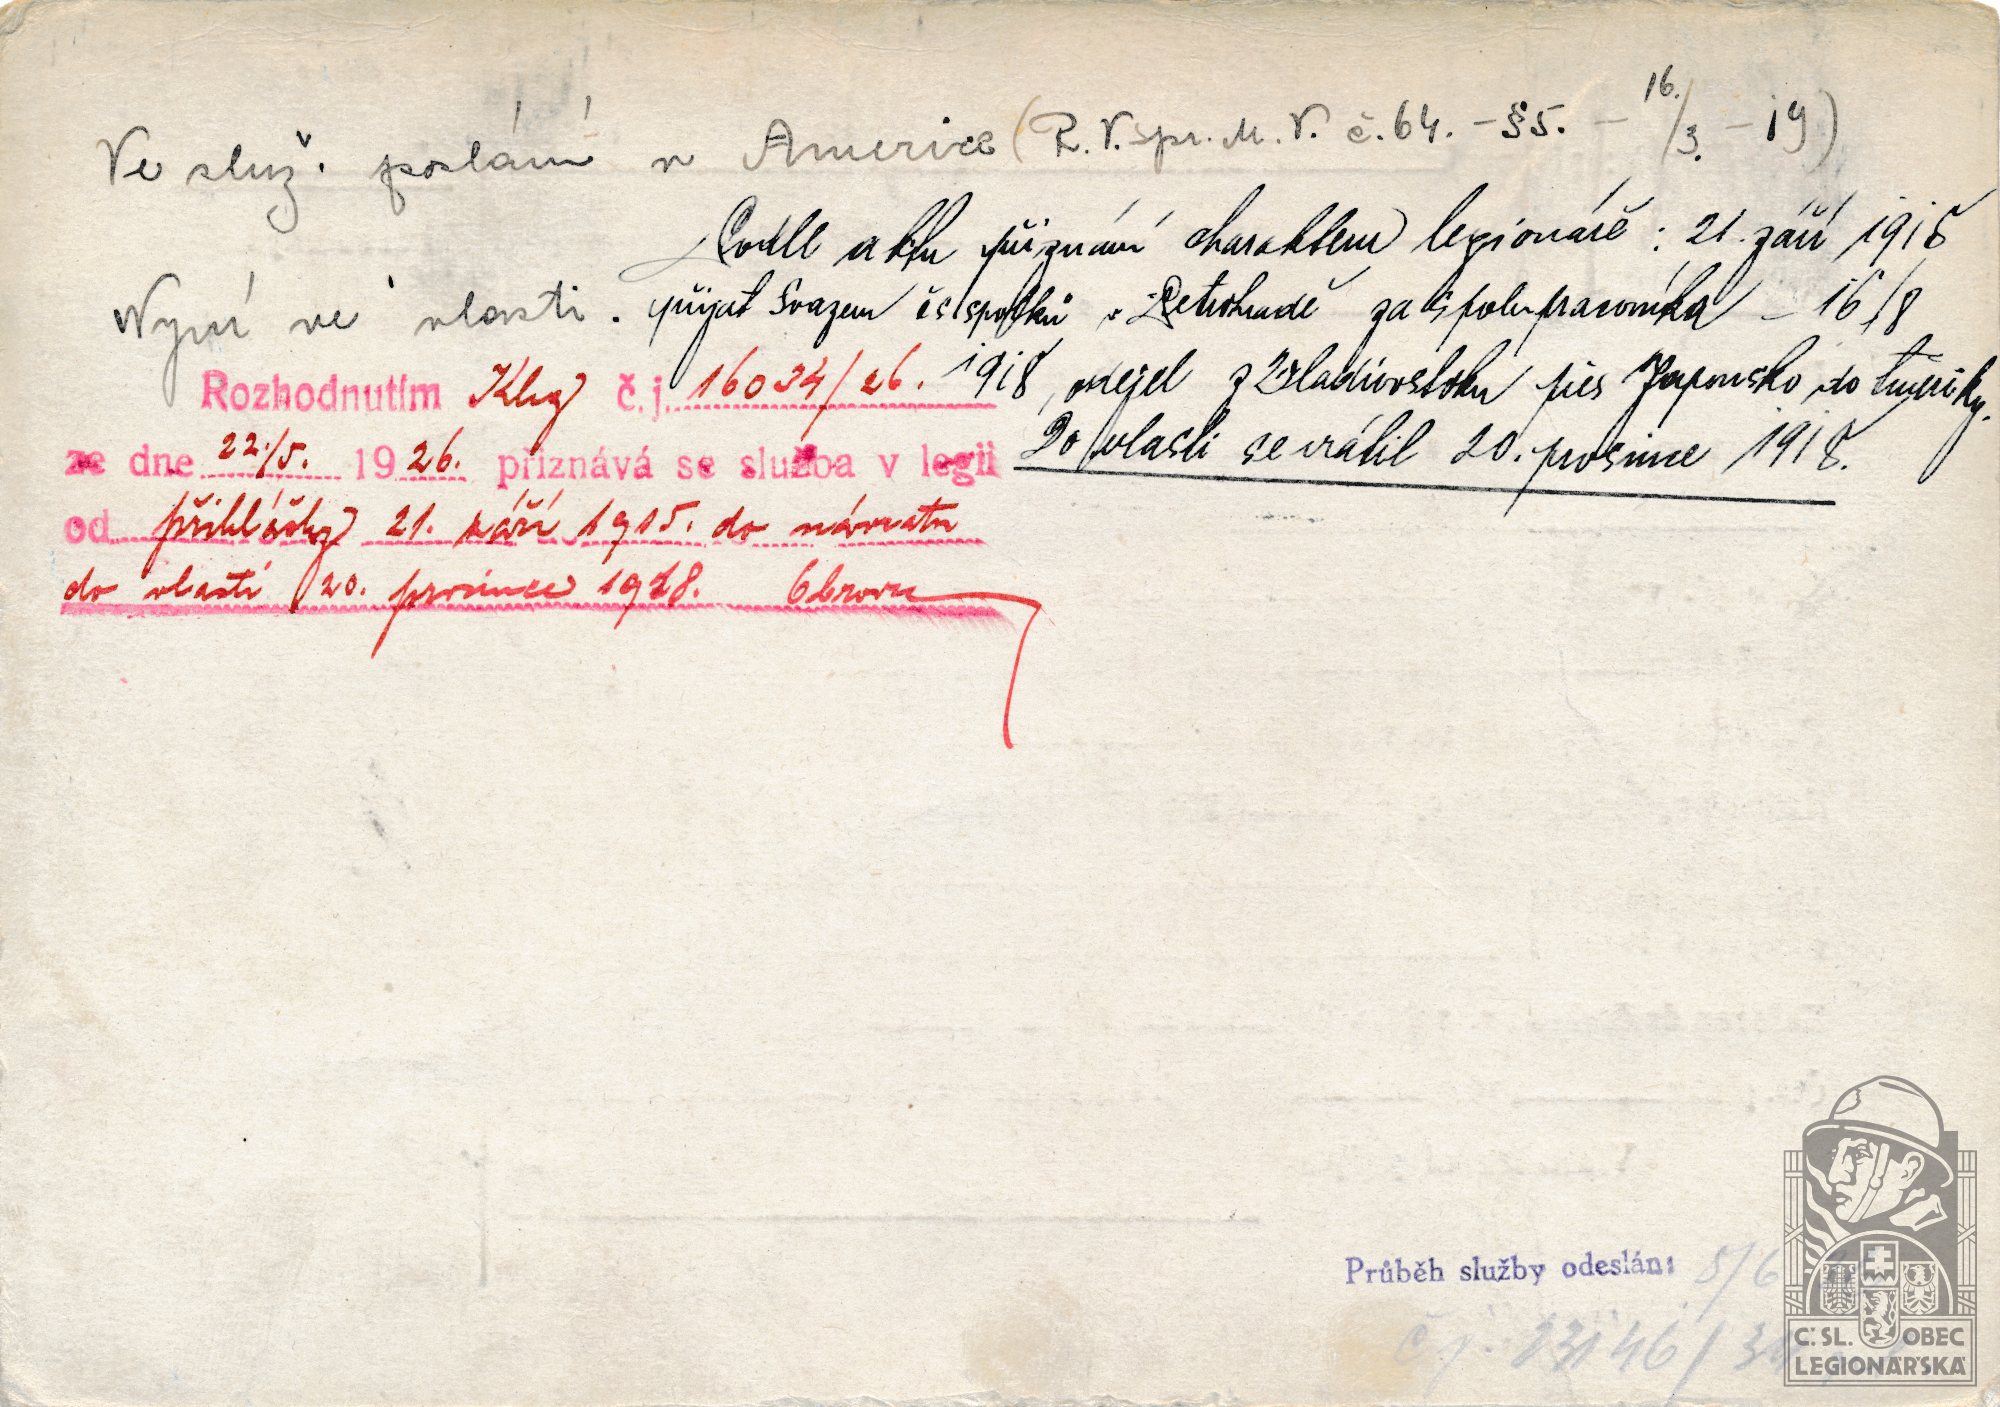 Ve služ. poslání v Americe (R. V. spr. M. V. č. 64. – §5. – 16./3. – 19)
Podle aktu přiznání charakteru legionáře: 21. září 1915
Nyní ve vlasti. přijat Svazem čs spolků v Petrohradě za spolupracovníka – 16/8
1918, odejel z Vladivostoku přes Japonsko do Ameriky.
Do vlasti se vrátil 20. prosince 1918.
Rozhodnutím Kleg č. j. 16034/26.
ze dne 22./5. 1926. přiznává se služba v legii
od přihlášky 21. září 1915. do návratu
do vlasti 20. prosince 1918.
Průběh služby odeslán: 5/6
Č. j. 23146/3
Č. SL. OBEC
LEGIONÁŘSKÁ